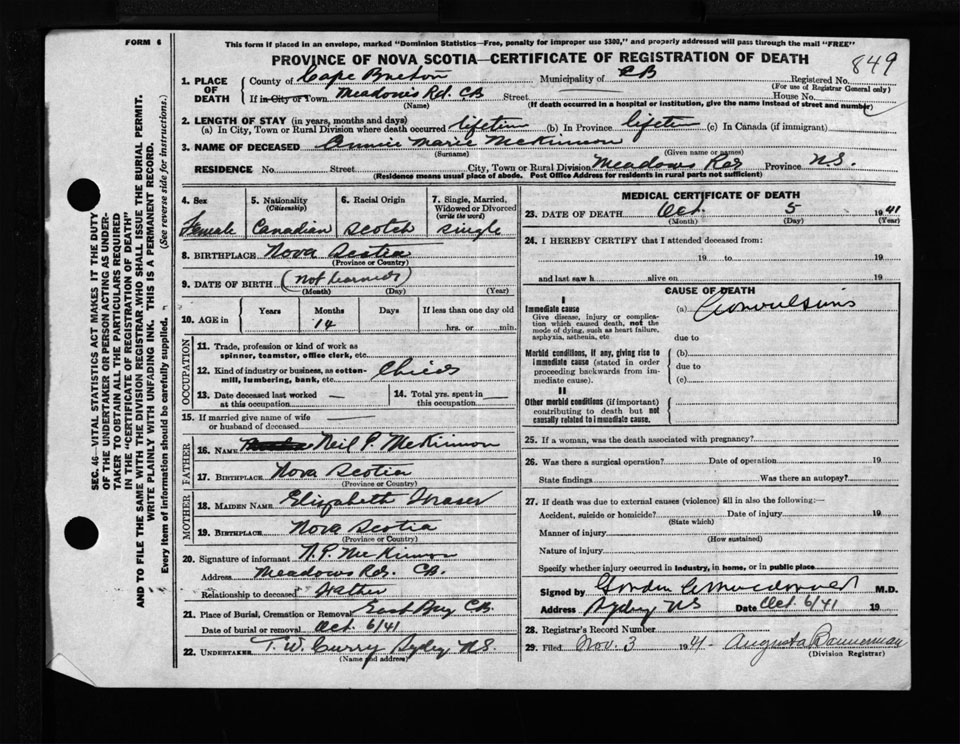 FORM 6
This form if placed in an envelope, marked "Dominion Statistics—Free, penalty for improper use $300," and properly addressed will pass through the mail "FREE"
PROVINCE OF NOVA SCOTIA—CERTIFICATE OF REGISTRATION OF DEATH
849
SEC. 46—VITAL STATISTICS ACT MAKES IT THE DUTY
OF THE UNDERTAKER OR PERSON ACTING AS UNDER-
TAKER TO OBTAIN ALL THE PARTICULARS REQUIRED
IN THE "CERTIFICATE OF REGISTRATION OF DEATH"
AND TO FILE THE SAME WITH THE DIVISION REGISTRAR WHO SHALL ISSUE THE BURIAL PERMIT.
WRITE PLAINLY WITH UNFADING INK. THIS IS A PERMANENT RECORD.
Every item of information should be carefully supplied. (See reverse side for instructions.)
1. PLACE OF DEATH
County of Cape Breton Municipality of CB Registered No.
(For use of Registrar General only)
If in City or Town Meadows Rd. CB Street House No.
(Name) (If death occurred in a hospital or institution, give the name instead of street and number)
2. LENGTH OF STAY (in years, months and days)
(a) In City, Town or Rural Division where death occurred lifetim (b) In Province lifetim (c) In Canada (if immigrant)
3. NAME OF DECEASED Annie Marie McKinnon
(Surname) (Given name or names)
RESIDENCE No. Street City, Town or Rural Division Meadows Rd. Province N.S.
(Residence means usual place of abode. Post Office Address for residents in rural parts not sufficient)
4. Sex
Female
5. Nationality
(Citizenship)
Canadian
6. Racial Origin
Scotch
7. Single, Married,
Widowed or Divorced
(write the word)
Single
8. BIRTHPLACE Nova Scotia
(Province or Country)
9. DATE OF BIRTH (not learned)
(Month) (Day) (Year)
10. AGE in
Years Months Days If less than one day old
14
hrs. or min.
OCCUPATION
11. Trade, profession or kind of work as
spinner, teamster, office clerk, etc.
12. Kind of industry or business, as cotton-
mill, lumbering, bank, etc. Child
13. Date deceased last worked
at this occupation —
14. Total yrs. spent in
this occupation —
15. If married give name of wife
or husband of deceased
FATHER
16. NAME Neil P. McKinnon
17. BIRTHPLACE Nova Scotia
(Province or Country)
MOTHER
18. MAIDEN NAME Elizabeth Fraser
19. BIRTHPLACE Nova Scotia
(Province or Country)
20. Signature of informant N. P. McKinnon
Address Meadows Rd. CB.
Relationship to deceased Father
21. Place of Burial, Cremation or Removal East Bay CB
Date of burial or removal Oct. 6/41
22. UNDERTAKER T. W. Curry Sydney N.S.
(Name and address)
MEDICAL CERTIFICATE OF DEATH
23. DATE OF DEATH Oct. 5 1941
(Month) (Day) (Year)
24. I HEREBY CERTIFY that I attended deceased from:
19 to 19
and last saw h alive on 19
CAUSE OF DEATH
I
Immediate cause
Give disease, injury or complica-
tion which caused death, not the
mode of dying, such as heart failure,
asphyxia, asthenia, etc
(a) Convulsions
due to
Morbid conditions, if any, giving rise to
immediate cause (stated in order
proceeding backwards from im-
mediate cause).
(b)
due to
(c)
II
Other morbid conditions (if important)
contributing to death but not
causally related to immediate cause.
25. If a woman, was the death associated with pregnancy?
26. Was there a surgical operation? Date of operation 19
State findings Was there an autopsy?
27. If death was due to external causes (violence) fill in also the following:—
Accident, suicide or homicide? Date of injury 19
(State which)
Manner of injury
(How sustained)
Nature of injury
Specify whether injury occurred in industry, in home, or in public place
Signed by Gordon Macdonald M.D.
Address Sydney NS Date Oct. 6/41 19
28. Registrar's Record Number
29. Filed Nov. 3 1941 Augusta Bannerman
(Division Registrar)